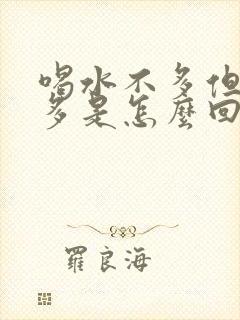 喝水不多但
多是怎麼回
羅良海